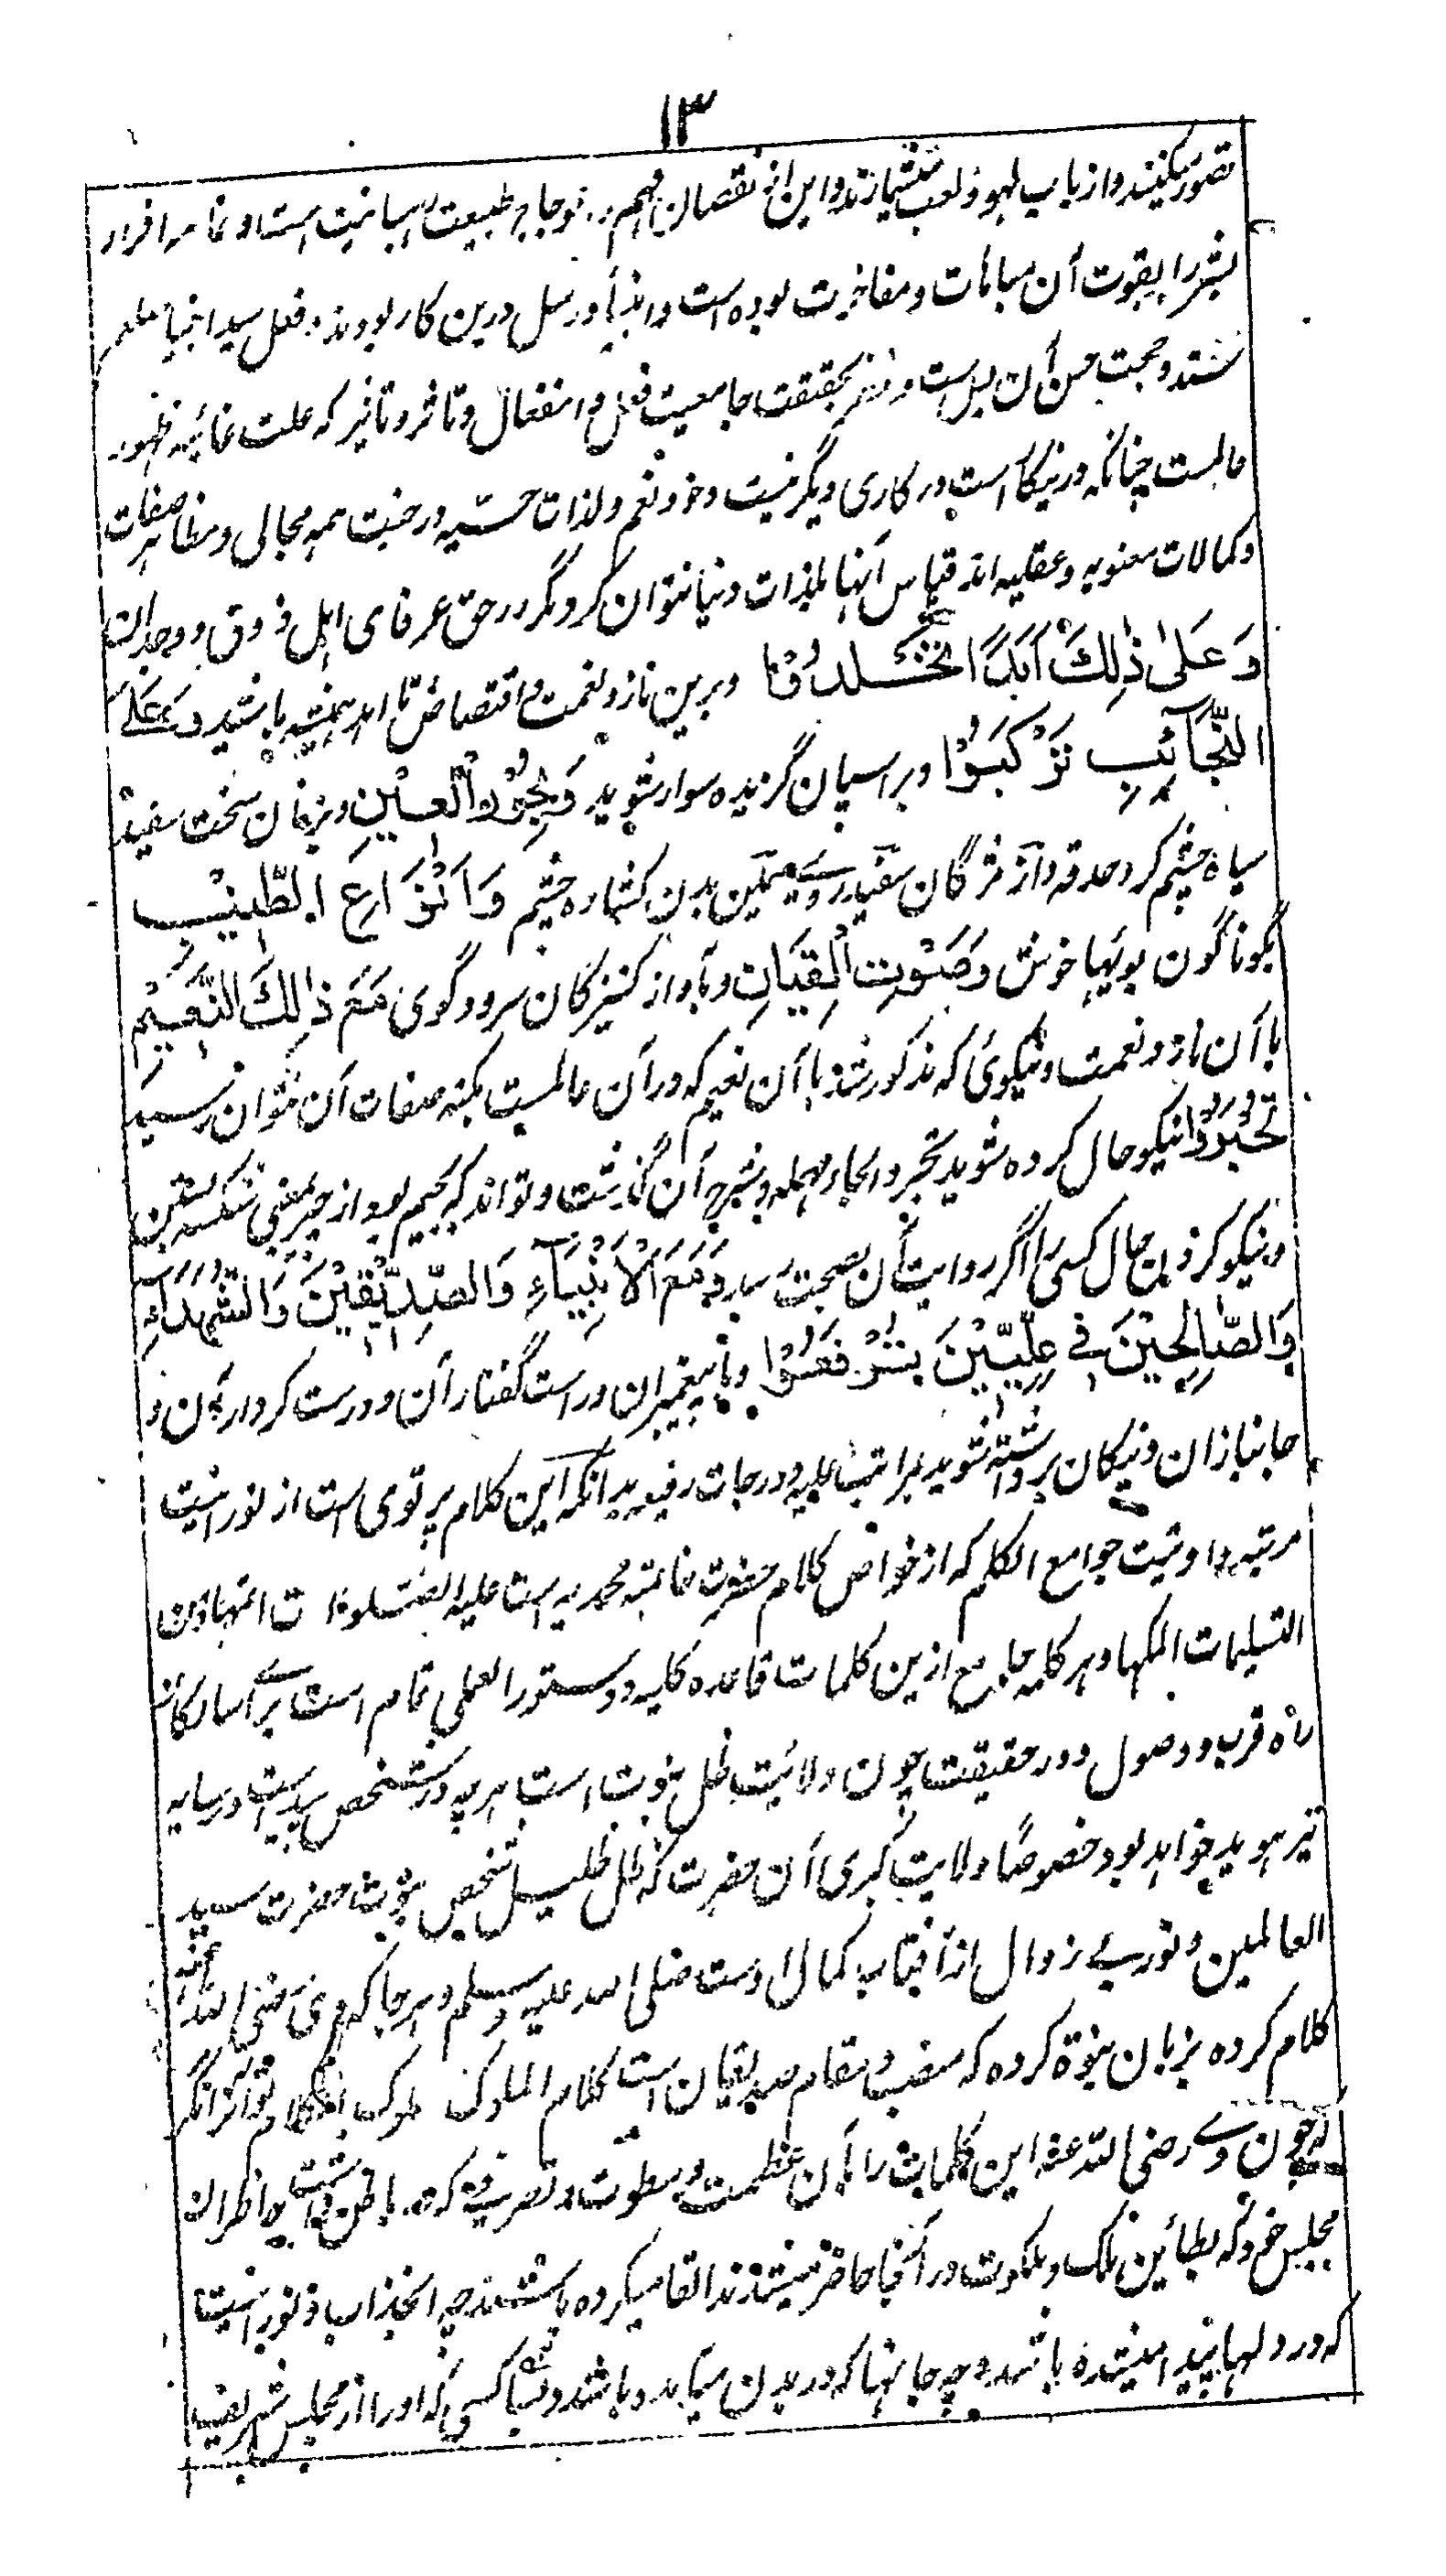 ۱۳
تصور میکنند و از باب لهو و لعب میشمارند و این از نقصان فهم و طبیعت انسانیت است و تمامه افراد
بشر را بقوت آن مباهات و مفاخرت بوده است و انبیا و رسل درین کار بودند و فعل سید انبیا صلعم
سند و حجت حسن آن بس است و نیز بحقیقت جامعیت فعل و انفعال و تاثر و تاثیر که علت غائیه ظهور
عالمست چنانکه در نکاح است در کاری دیگر نیست و خود نعم و لذات حسیه در جنت همه مجالی و مظاهر صفات
و کمالات معنویه و عقلیه اند قیاس آنها بلذات دنیا نتوان کرد مگر در حق عرفای اهل ذوق و وجدان
وَعَلٰی ذٰلِكَ اَبَدًا تَخْلُدُوْا و برین ناز و نعمت و اختصاص تا ابد همیشه باشید وَعَلَی
النَّجَآئِبِ تَرْكَبُوْا و بر اسپان گزیده سوار شوید وَبِحُوْرِ الْعِیْنِ و بزنان سخت سفید
سیاه چشم گرد حدقه دراز مژگان سفید روی سیمین بدن کشاده چشم وَاَنْوَاعِ الطِّیْبِ
بگوناگون بویهای خوش وَصَوْتِ الْقِیَانِ و بآواز کنیزکان سرود گوی مَعَ ذٰلِكَ النَّعِیْمِ
با آن ناز و نعمت و نیکوئی که مذکور شد با آن نعیم که در آن عالمست بکنه صفات آن نتوان رسید
تُحْبَرُوْا نیکو حال کرده شوید تحبروا بحاء مهمله و شرح آن گذشت و تواند که بجیم بود از جبر بمعنی شکسته بستن
و نیکو کردن حال کسی را اگر روایت آن بصحت رسد وَمَعَ الْاَنْبِیَآءِ وَالصِّدِّیْقِیْنَ وَالشُّهَدَآءِ
وَالصَّالِحِیْنَ فِی عِلِّیِّیْنَ تُرْفَعُوْا و با پیغمبران و راست گفتاران و درست کرداران و
جانبازان و نیکان برداشته شوید بمراتب علیه و درجات رفیعه بدانکه این کلام پرتوی است از نورانیت
مرتبه اوتیت جوامع الکلم که از خواص کلام حضرت خاتمیه محمدیه است علیه الصلوة اتمها و من
التسلیمات اکملها و هر کلمه جامع ازین کلمات قاعده کلیه و دستور العملی تمام است برای سالکان
راه قرب و وصول و در حقیقت چون ولایت ظل نبوت است هر چه در شخص پیداست در سایه
نیز هویدا خواهد بود خصوصًا ولایت کبری آن حضرت که ظل ظلیل شخص نبوت حضرت سید
العالمین و نور بی زوال از آفتاب کمال اوست صلی الله علیه و سلم و هر جا که وی رضی الله عنه
کلام کرده بزبان نبوة کرده که منصب و مقام صدیقیان است کلام الملوک ملوک الکلام
که چون وی رضی الله عنه این کلمات را بآن عظمت و سطوت و تصرف که باطن داشت بر حاضران
مجلس خود که بطائین ملک و ملکوت در آنجا حاضر میشدند القا میکرده باشند چه انجذاب و نورانیت
که در دلها پیدا میشده باشد و چه جانها که در بدن میآمده باشد و بسا کسی که او را از مجلس شریف